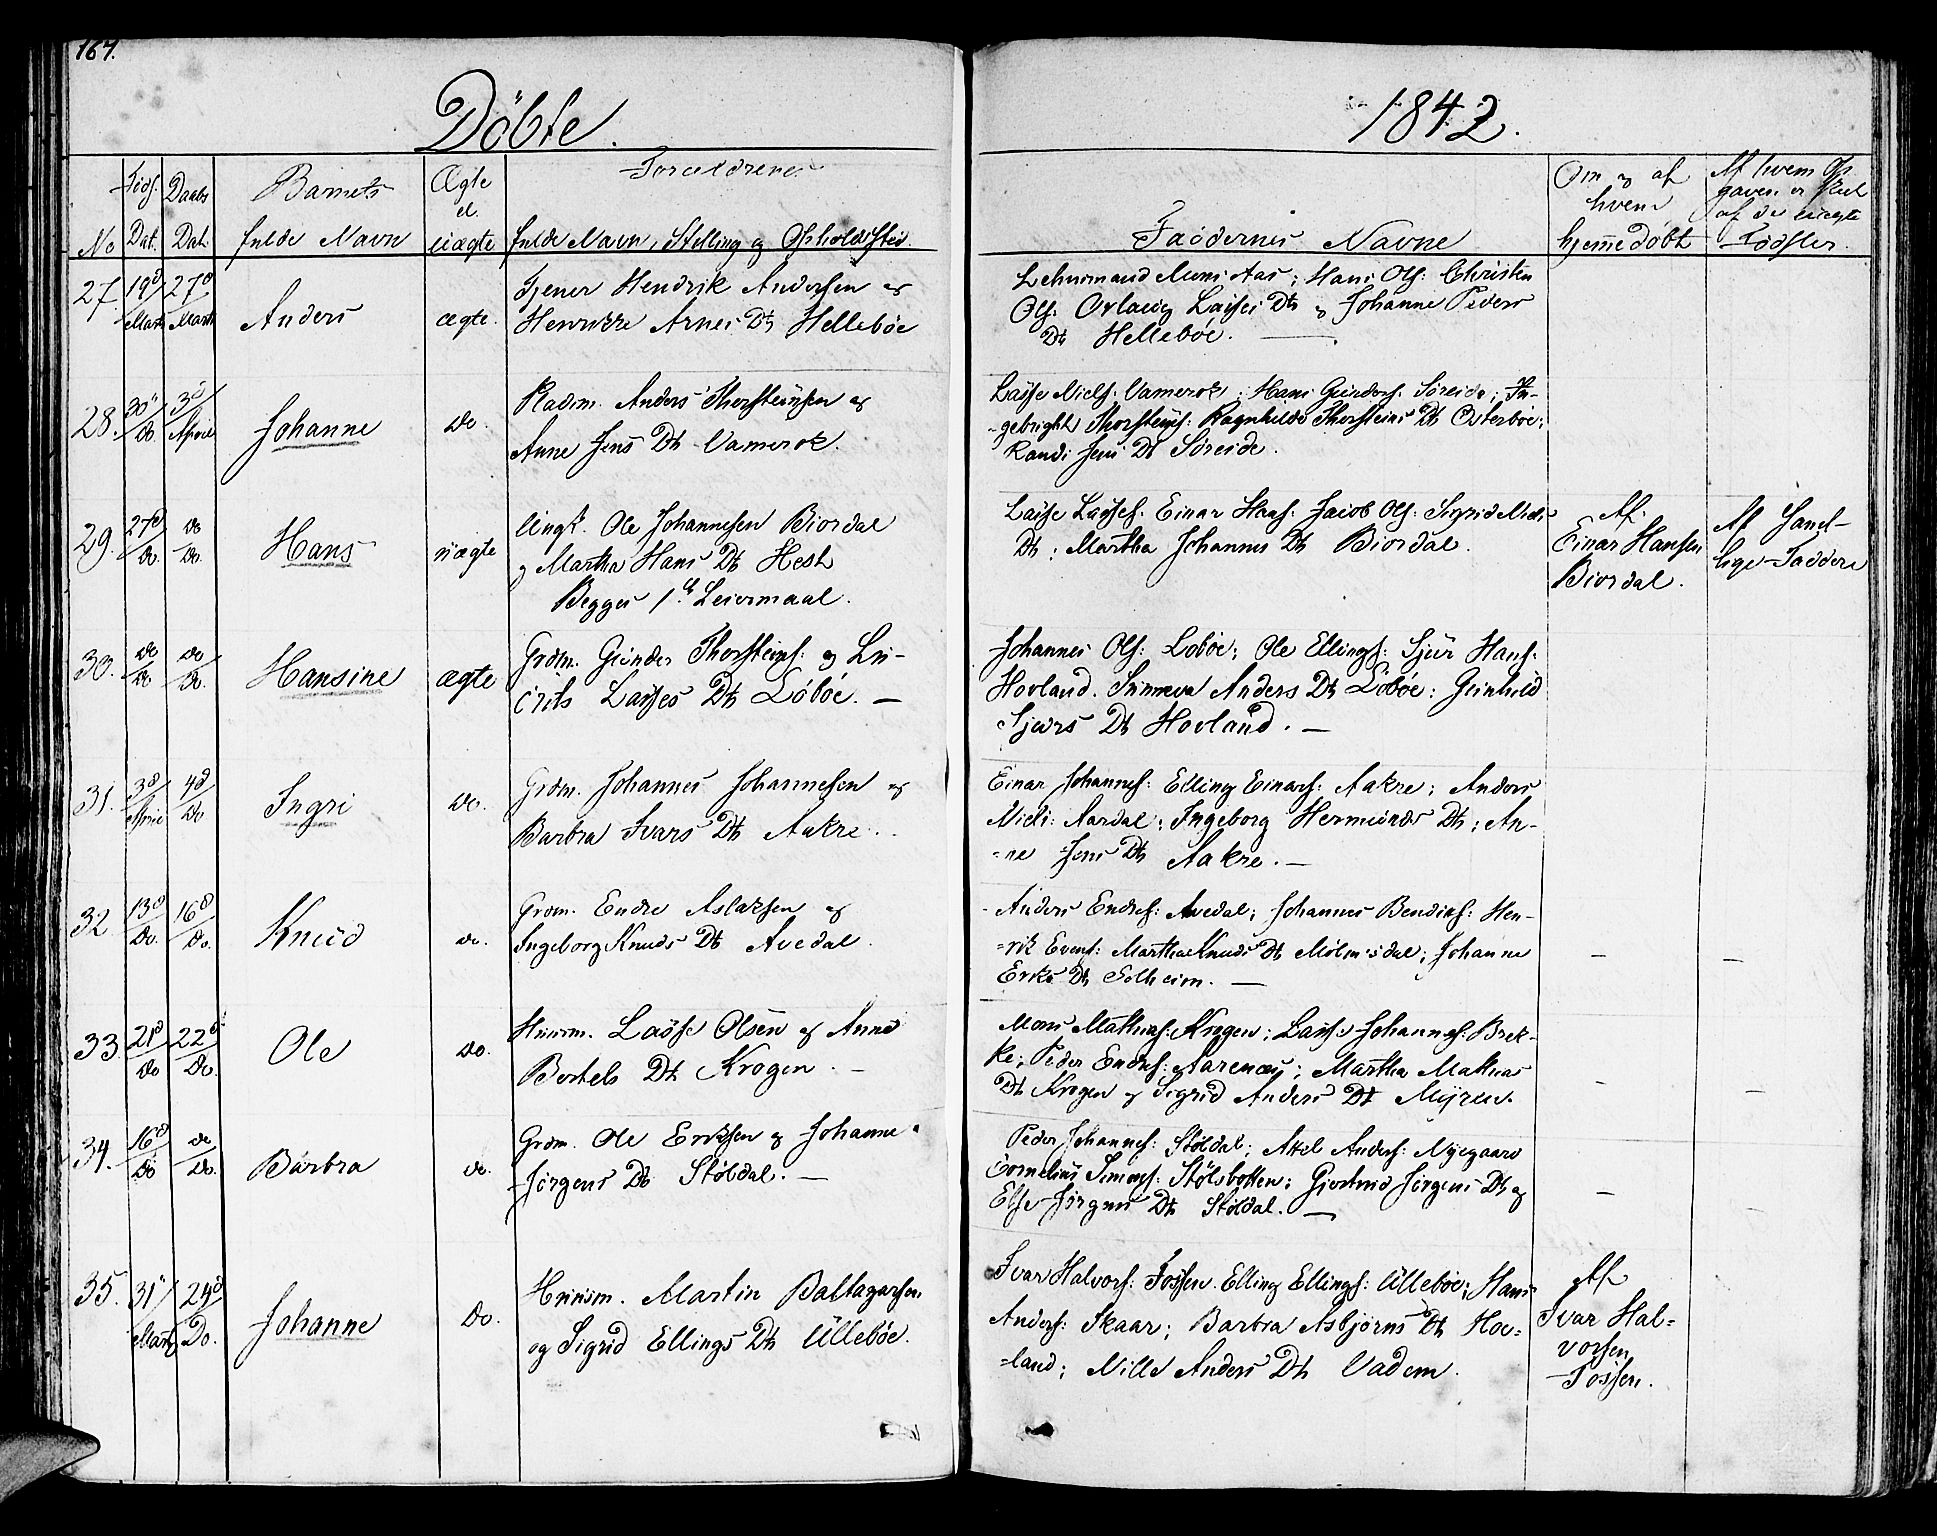 167.
Döbte.
1842.
No
Föds. Dat.
Daabs Dat.
Barnets
fulde Navn
Ægte
el.
uægte
Forældrenes
fulde Navn, Stilling og Opholdsted.
Faddernes Navne
Om og af
hvem
hjemmedøbt
Af hvem Op-
gaven er skeet
af de uægte
Fødsler.
27. 19d/Marts 27d/Marts Anders ægte. Tjener Hendrik Andersen og
Henrikke Arnes Dtr Hellebøe
Lehnsmand Muns Aas; Hans Ols: Christen
Ols: Ovlaug Lasses Dtr og Johanne Peders
Dtr Hellebøe. —
28. 30"/Do. 3d/April Johanne do. Pladsm. Anders Thorsteinsen og
Anne Jens Dtr Vamerok.
Lasse Niels: Vamerok; Hans Gunders: Søreide; In-
-gebright Thorsteins: Ragnhilde Thorsteins Dtr Østerbøe;
Randi Jens Dtr Søreide.
29. 27d/Do. do/Do. Hans uægte Ungk. Ole Johannesen Biordal
og Martha Hans Dtr Hest
Begges 1ste Leiermaal.
Lasse Lasses: Einar Hans: Jacob Ols: Sigrid Niels
Dtr; Martha Johannes Dtr Biordal.
Af
Einar Hansen
Biordal.
Af Samt-
lige Faddere
30. do/Do do/Do. Hansine ægte Grdm. Gunder Thorsteins: og Lu-
crits Lasses Dtr Løbøe. —
Johannes Ols: Lobøe; Ole Ellings: Sjur Hans:
Hovland. Sunneva Anders Dtr Løbøe; Gunhild
Sjurs Dtr Hovland. —
31. 3d/April 4d/Do Ingri do. Grdm. Johannes Johannesen og
Barbra Ivars Dtr Aakre.
Einar Johannes: Elling Einars: Aakre; Anders
Niels: Aardal; Ingeborg Hermunds Dtr; An-
-ne Jens Dtr Aakre. —
32. 13d/Do. 16d/Do. Knud do. Grdm. Endre Aslaksen og
Ingeborg Knuds Dtr Avedal.
Anders Endres: Avedal; Johannes Bendiks: Hen-
-rik Evens: Martha Knuds Dtr Molmisdal; Johanne
Eriks Dtr Solheim. —
— —
33. 21d/Do 22d/Do. Ole do. Huusm. Lasse Olsen og Anne
Bertels Dtr Krogen. —
Mons Mathias: Krogen; Lasse Johannes: Brek-
ke; Peder Endres: Aarenæs; Martha Mathias
Dtr Krogen og Sigrid Anders Dtr Myren.
— —
34. 16d/Do do/Do. Barbra do. Grdm. Ole Eriksen og Johanne
Jørgens Dtr Støldal. —
Peder Johannes: Støldal; Axel Anders: Nyegaard
Cornelius Simons: Stølsbotten; Gjertrud Jørgens Dtr og
Else Jørgens Dtr Støldal. —
—
35. 31"/Marts 24d/Do. Johanne do. Huusm. Martin Baltazarsen
og Sigrid Ellings Dtr Ullebøe.
Ivar Halvors: Fossen. Elling Ellings: Ullebøe; Hans
Anders: Skaar; Barbra Asbjørns Dtr Hov-
-land; Nille Anders Dtr Vadem.
Af
Ivar Hal-
vorsen
Fossen.